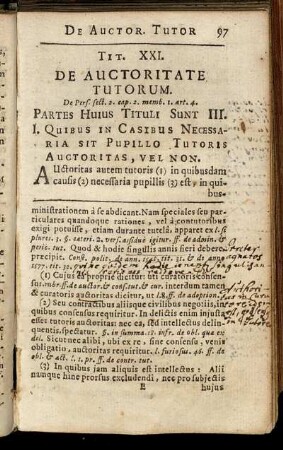 DE AUCTOR. TUTOR 97
TIT. XXI.
DE AUCTORITATE
TUTORUM.
De Pers. sect. 2. cap. 2. memb. 1. art. 4.
PARTES HUIUS TITULI SUNT III.
I. QUIBUS IN CASIBUS NECESSA-
RIA SIT PUPILLO TUTORIS
AUCTORITAS, VEL NON.
AUctoritas autem tutoris (1) in quibusdam
causis (2) necessaria pupillis (3) est, in qui-
bus-
ministrationem à se abdicant. Nam speciales seu par-
ticulares quandoque rationes, vel à contutoribus
exigi potuisse, etiam durante tutelâ, apparet ex l. si
plures. 3. §. cæteri. 2. vers. afidus igitur. ff. de admin. &
peric. tut. Quod & hodie singulis annis fieri debere,
præcipit. Conf. polit. de anno 1548. tit. 31. & de anno
1577. tit. 32.
(1) Cujus est propriè directus uti curatoris consen-
sus. rubr. ff. de auctor. & consf. tut. & cur. interdum tamen
& curatoris auctoritas dicitur, ut l. 8. ff. de adoption.
(2) Seu contractibus aliisque civilibus negotiis, in
quibus consensus requiritur. In delictis enim injusta
esset tutoris auctoritas: nec ea, sed intellectus delin-
quentis, spectatur.
Sicut nec alibi, ubi ex re, sine consensu, venit
obligatio, auctoritas requiritur. l. furiosus. 46. ff. de
obl. & act. l. 1. pr. ff. de contr. tut.
(3) In quibus jam aliquis est intellectus: Alii
nunque hinc prorsus excludendi, nec pro subjectis
E hujus